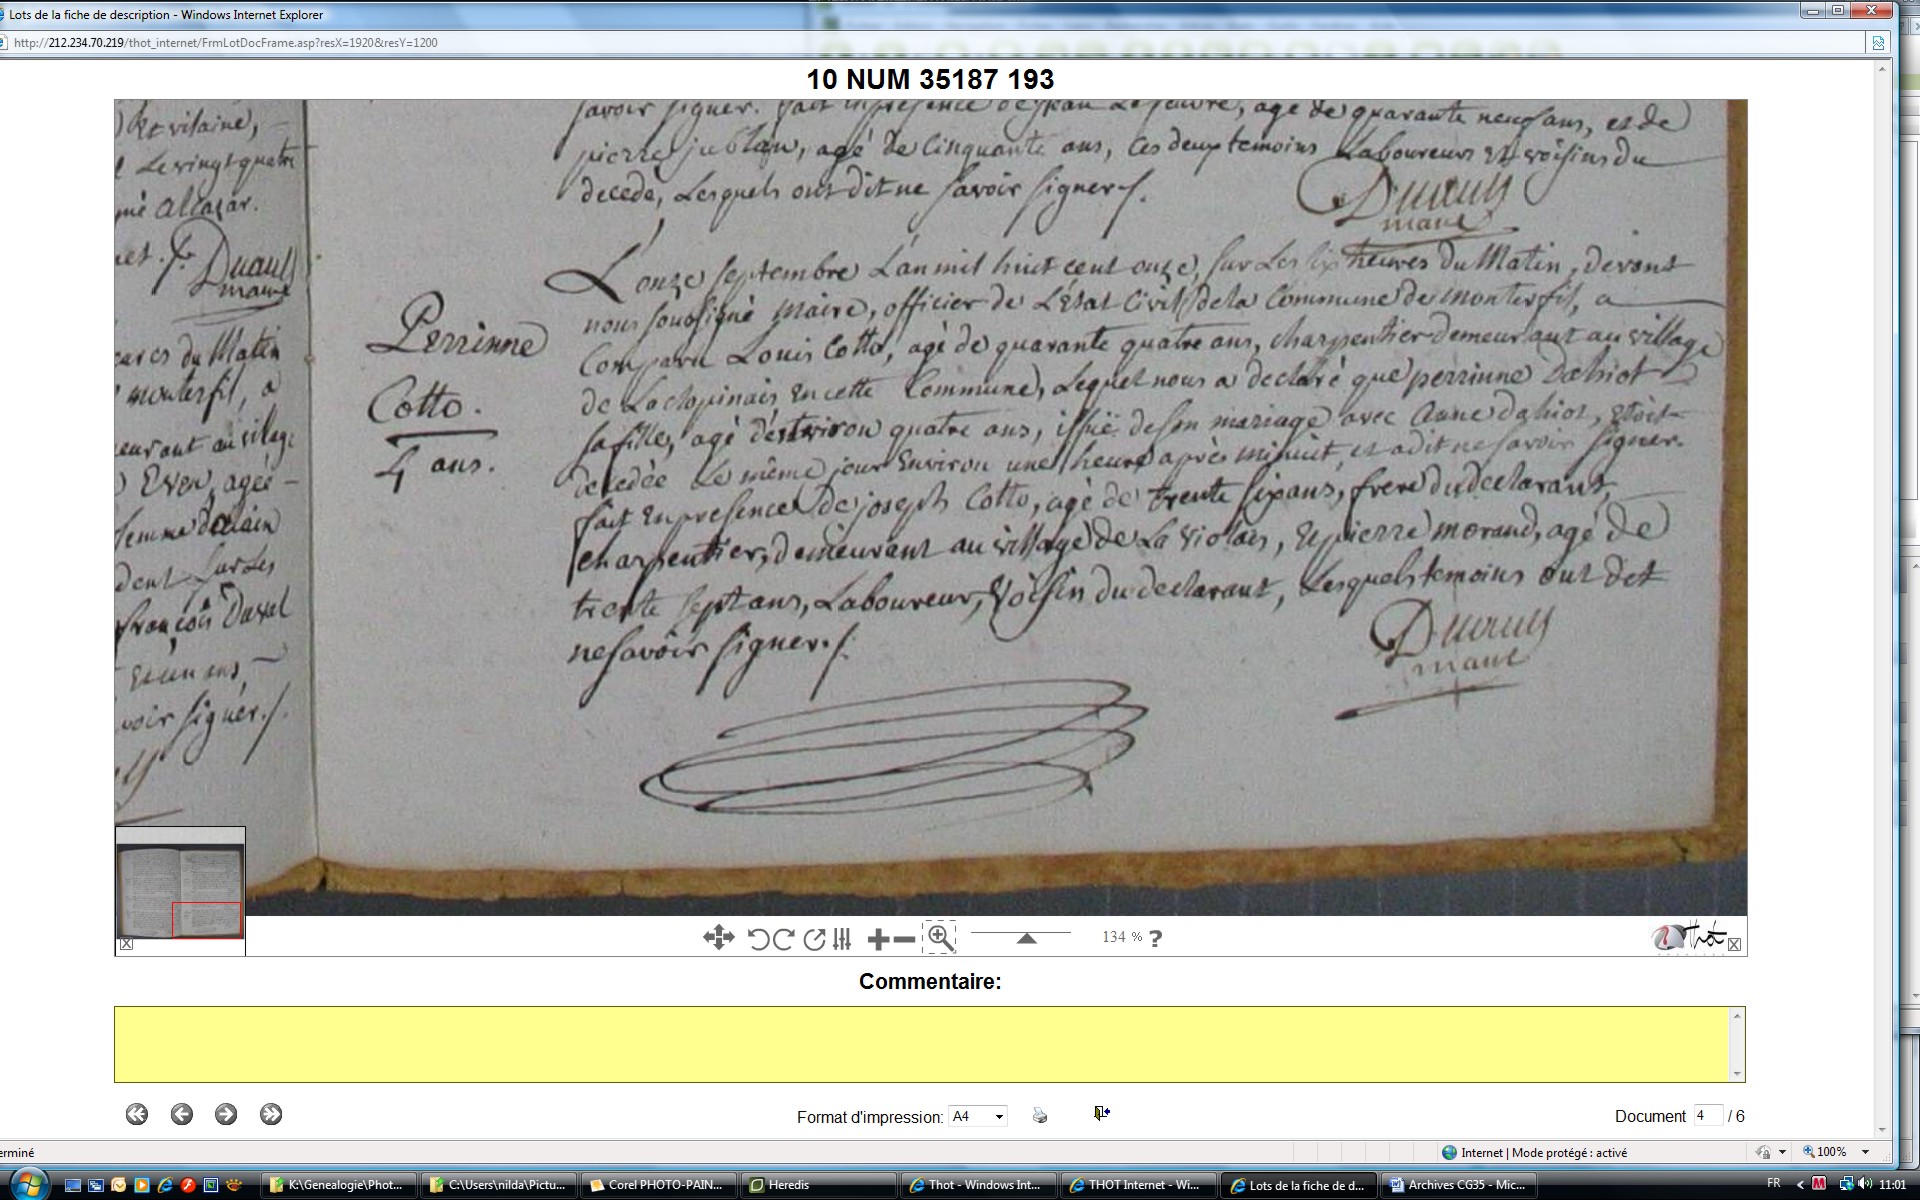 Lots de la fiche de description - Windows Internet Explorer
http://212.234.70.219/thot_internet/FrmLotDocFrame.asp?resX=1920&resY=1200
10 NUM 35187 193
Et vilaine,
Le vingt quatre
Duault
maire
du Matin
monterfil, a
demeurant au vilage
Even, agée
femme
sur Les
françois Duval
savoir signer./.
savoir signer. fait en presence de jean Lefeuvre, agé de quarante neuf ans, et de
pierre jublan, agé de Cinquante ans, Ces deux temoins Laboureurs Et voisins du
decedé, Lesquels ont dit ne savoir signer./.
Duault
maire
Perrinne
Cotto.
4 ans.
L'onze septembre L'an mil huit cent onze, sur Les six heures du Matin, devant
nous sousigné Maire, officier de L'État Civil de la Commune de monterfil, a
Comparu Louis Cotto, agé de quarante quatre ans, charpentier demeurant au village
de La clopinais En cette Commune, Lequel nous a declaré que perrinne Dahiot
sa fille, agé d'environ quatre ans, issüe de son mariage avec Anne dahiot, Etoit
decedée Le même jour Environ une heure après minuit, et a dit ne savoir signer.
fait En presence de joseph Cotto, agé de trente six ans, frere du declarant,
charpentier, demeurant au village de La Violais, Et pierre morand, agé de
trente sept ans, Laboureur, Voisin du declarant, Lesquels temoins ont dit
ne savoir signer./.
Duault
maire
134 % ?
Thot
Commentaire:
Format d'impression: A4
Document 4 / 6
erminé
Internet | Mode protégé : activé
100%
K:\Genealogie\Phot...
C:\Users\nilda\Pictu...
Corel PHOTO-PAIN...
Heredis
Thot - Windows Int...
THOT Internet - Wi...
Lots de la fiche de d...
Archives CG35 - Mic...
FR
11:01